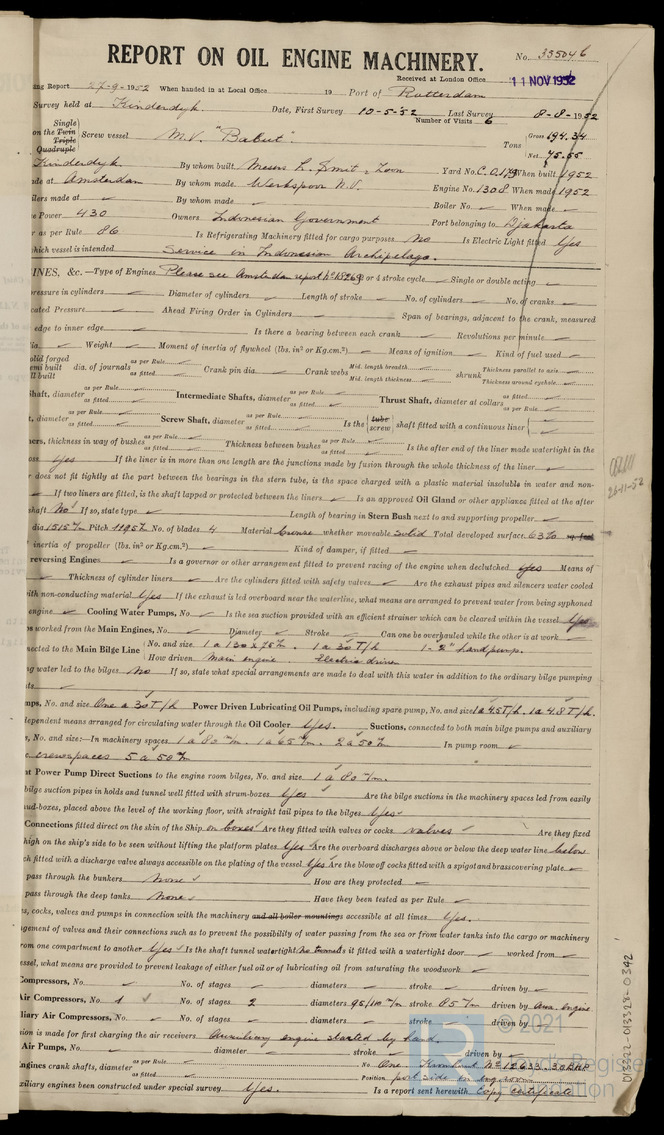 REPORT ON OIL ENGINE MACHINERY.
No. 335046
Received at London Office
11 NOV 1952
ing Report 27-9-1952 When handed in at Local Office 19 Port of Rotterdam
Survey held at Kinderdyk. Date, First Survey 10-5-52 Last Survey 8-8-1952
Number of Visits 6
Single
on the Twin
Triple
Quadruple
Screw vessel M.V. "Babut".
Tons
Gross 194.34
Net 75.55
Kinderdyk By whom built Messrs L. Smit & Zoon Yard No. C.O.179 When built 1952
de at Amsterdam By whom made Werkspoor N.V. Engine No. 1308 When made 1952
ilers made at By whom made Boiler No. When made
e Power 430 Owners Indonesian Government Port belonging to Djakarta
r as per Rule 86 Is Refrigerating Machinery fitted for cargo purposes No Is Electric Light fitted Yes
hich vessel is intended Service in Indonesian Archipelago.
INES, &c.—Type of Engines Please see Amsterdam report No 18269 or 4 stroke cycle Single or double acting
pressure in cylinders Diameter of cylinders Length of stroke No. of cylinders No. of cranks
cated Pressure Ahead Firing Order in Cylinders Span of bearings, adjacent to the crank, measured
edge to inner edge Is there a bearing between each crank Revolutions per minute
ia. Weight Moment of inertia of flywheel (lbs. in² or Kg.cm.²) Means of ignition Kind of fuel used
olid forged
emi built
ll built
dia. of journals as per Rule as fitted Crank pin dia. Crank webs Mid. length breadth Mid. length thickness shrunk Thickness parallel to axis Thickness around eyehole
Shaft, diameter as per Rule as fitted Intermediate Shafts, diameter as per Rule as fitted Thrust Shaft, diameter at collars as fitted as per Rule
t, diameter as per Rule as fitted Screw Shaft, diameter as per Rule as fitted Is the tube screw shaft fitted with a continuous liner
ners, thickness in way of bushes as per Rule as fitted Thickness between bushes as per Rule as fitted Is the after end of the liner made watertight in the
oss Yes If the liner is in more than one length are the junctions made by fusion through the whole thickness of the liner
r does not fit tightly at the part between the bearings in the stern tube, is the space charged with a plastic material insoluble in water and non-
If two liners are fitted, is the shaft lapped or protected between the liners Is an approved Oil Gland or other appliance fitted at the after
shaft No If so, state type Length of bearing in Stern Bush next to and supporting propeller
dia 1515 m/m Pitch 1195 m/m No. of blades 4 Material bronze whether moveable solid Total developed surface 63%
inertia of propeller (lbs. in² or Kg.cm.²) Kind of damper, if fitted
reversing Engines Is a governor or other arrangement fitted to prevent racing of the engine when declutched Yes Means of
Thickness of cylinder liners Are the cylinders fitted with safety valves Are the exhaust pipes and silencers water cooled
ith non-conducting material Yes If the exhaust is led overboard near the waterline, what means are arranged to prevent water from being syphoned
engine. Cooling Water Pumps, No. Is the sea suction provided with an efficient strainer which can be cleared within the vessel Yes
s worked from the Main Engines, No. Diameter Stroke Can one be overhauled while the other is at work
nected to the Main Bilge Line No. and size 1 a 130 x 75 m/m. 1 a 30 T/h 1-2" hand pump.
How driven Main engine Electric driven
ng water led to the bilges No If so, state what special arrangements are made to deal with this water in addition to the ordinary bilge pumping
nts
mps, No. and size One a 30 T/h Power Driven Lubricating Oil Pumps, including spare pump, No. and size 1 a 4.5 T/h. 1 a 4.8 T/h.
dependent means arranged for circulating water through the Oil Cooler Yes. Suctions, connected to both main bilge pumps and auxiliary
, No. and size:—In machinery spaces 1 a 80 m/m. 1 a 65 m/m. 2 a 50 m/m In pump room
crewspaces 5 a 50 m/m
t Power Pump Direct Suctions to the engine room bilges, No. and size 1 a 80 m/m.
bilge suction pipes in holds and tunnel well fitted with strum-boxes Yes Are the bilge suctions in the machinery spaces led from easily
ud-boxes, placed above the level of the working floor, with straight tail pipes to the bilges Yes
Connections fitted direct on the skin of the Ship on boxes Are they fitted with valves or cocks valves Are they fixed
high on the ship's side to be seen without lifting the platform plates Yes Are the overboard discharges above or below the deep water line below
ch fitted with a discharge valve always accessible on the plating of the vessel Yes Are the blow off cocks fitted with a spigot and brass covering plate
pass through the bunkers None How are they protected
pass through the deep tanks None Have they been tested as per Rule
s, cocks, valves and pumps in connection with the machinery and all boiler mountings accessible at all times Yes.
gement of valves and their connections such as to prevent the possibility of water passing from the sea or from water tanks into the cargo or machinery
rom one compartment to another Yes Is the shaft tunnel watertight No tunnel Is it fitted with a watertight door worked from
essel, what means are provided to prevent leakage of either fuel oil or of lubricating oil from saturating the woodwork
Compressors, No. No. of stages diameters stroke driven by
Air Compressors, No. 1 No. of stages 2 diameters 95/110 m/m stroke 85 m/m driven by Aux. engine
liary Air Compressors, No. No. of stages diameters stroke driven by
sion is made for first charging the air receivers Auxiliary engine started by hand.
Air Pumps, No. diameter stroke driven by
ngines crank shafts, diameter as per Rule as fitted No. One Kromhout No 12633. 30 BHP
Position port side in eng. room
xiliary engines been constructed under special survey Yes. Is a report sent herewith Copy certificate
26-11-52
013322-013328-0342
© 2021
Lloyd's Register
Foundation